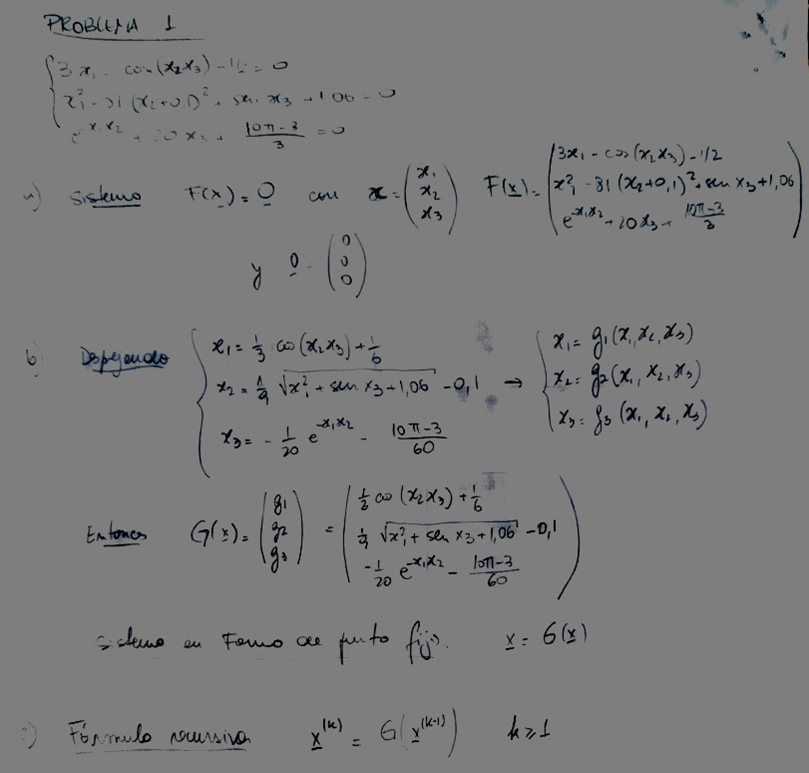 PROBLEMA 1
3x₁ - cos(x₂x₃) - 1/2 = 0
x₁² - 81(x₂+0,1)² + sen x₃ + 1,06 = 0
e^{-x₁x₂} + 20x₃ + (10π-3)/3 = 0
a) sistema F(x) = 0 con x = (x₁ x₂ x₃) F(x) = (3x₁ - cos(x₂x₃) - 1/2
x₁² - 81(x₂+0,1)² + sen x₃ + 1,06
e^{-x₁x₂} + 20x₃ + (10π-3)/3)
y 0 = (0 0 0)
b) Despejando
x₁ = 1/3 cos(x₂x₃) + 1/6 x₁ = g₁(x₁, x₂, x₃)
x₂ = 1/9 √(x₁² + sen x₃ + 1,06) - 0,1 → x₂ = g₂(x₁, x₂, x₃)
x₃ = -1/20 e^{-x₁x₂} - (10π-3)/60 x₃ = g₃(x₁, x₂, x₃)
Entonces G(x) = (g₁ g₂ g₃) = (1/3 cos(x₂x₃) + 1/6
1/9 √(x₁² + sen x₃ + 1,06) - 0,1
-1/20 e^{-x₁x₂} - (10π-3)/60)
sistema en Forma de punto fijo. x = G(x)
c) Fórmula recursiva x^{(k)} = G(x^{(k-1)}) k ≥ 1